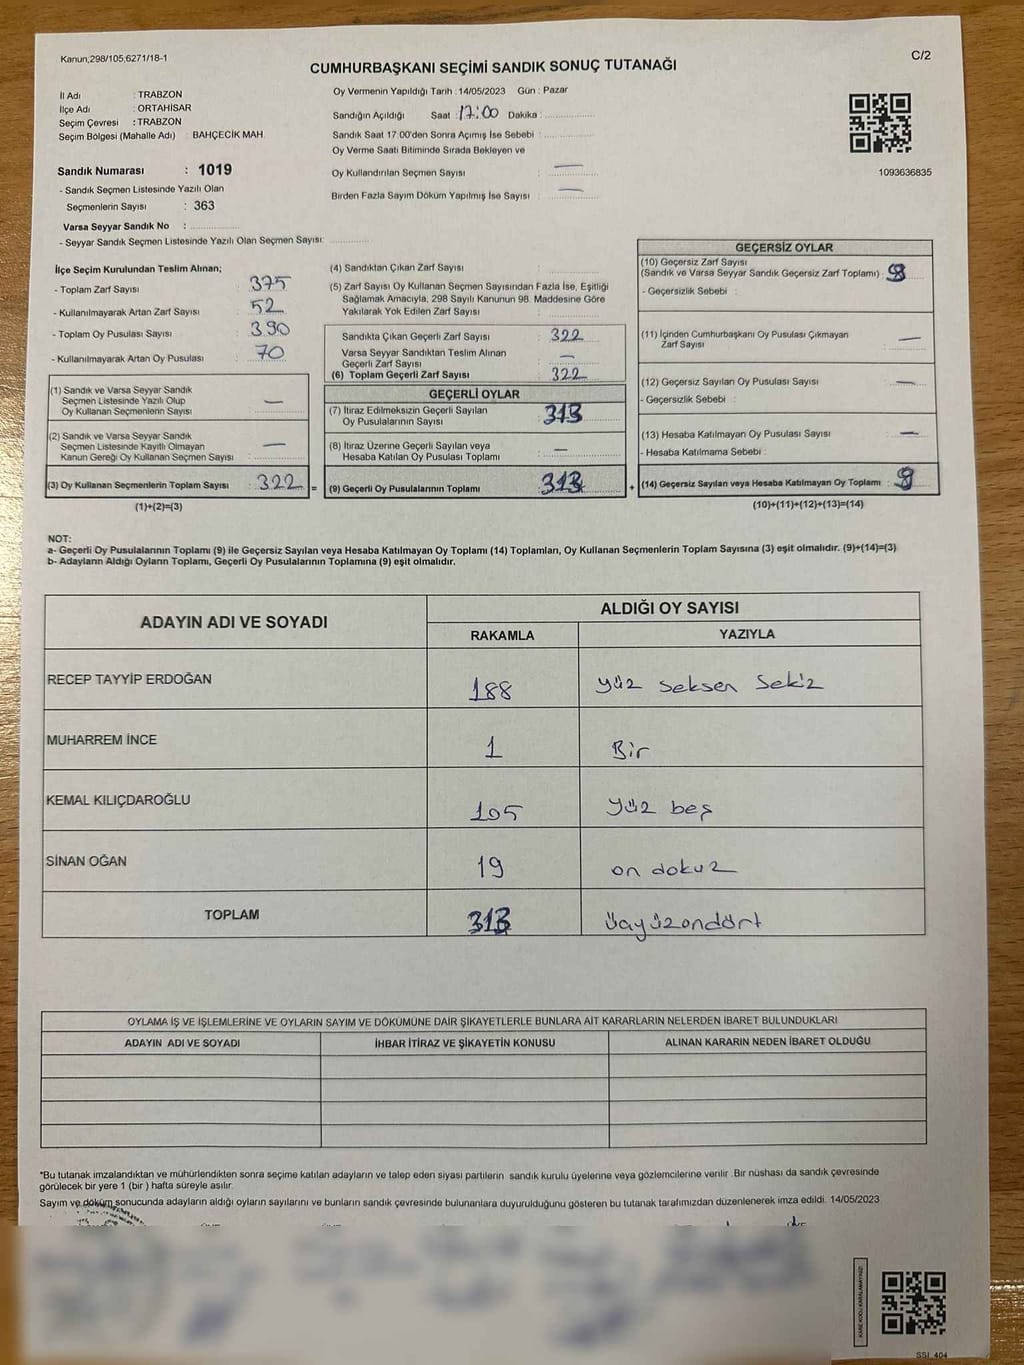 Kanun;298/105;6271/18-1
C/2
CUMHURBAŞKANI SEÇİMİ SANDIK SONUÇ TUTANAĞI
İl Adı : TRABZON
İlçe Adı : ORTAHİSAR
Seçim Çevresi : TRABZON
Seçim Bölgesi (Mahalle Adı) : BAHÇECİK MAH.
Sandık Numarası : 1019
- Sandık Seçmen Listesinde Yazılı Olan
Seçmenlerin Sayısı : 363
Varsa Seyyar Sandık No :
- Seyyar Sandık Seçmen Listesinde Yazılı Olan Seçmen Sayısı:
Oy Vermenin Yapıldığı Tarih :14/05/2023 Gün : Pazar
Sandığın Açıldığı Saat : 17:00 Dakika :
Sandık Saat 17:00'den Sonra Açımış İse Sebebi :
Oy Verme Saati Bitiminde Sırada Bekleyen ve
Oy Kullandırılan Seçmen Sayısı : —
Birden Fazla Sayım Döküm Yapılmış İse Sayısı : —
1093636835
İlçe Seçim Kurulundan Teslim Alınan;
- Toplam Zarf Sayısı : 375
- Kullanılmayarak Artan Zarf Sayısı : 52
- Toplam Oy Pusulası Sayısı : 390
- Kullanılmayarak Artan Oy Pusulası : 70
(1) Sandık ve Varsa Seyyar Sandık
Seçmen Listesinde Yazılı Olup
Oy Kullanan Seçmenlerin Sayısı : —
(2) Sandık ve Varsa Seyyar Sandık
Seçmen Listesinde Kayıtlı Olmayan
Kanun Gereği Oy Kullanan Seçmen Sayısı : —
(3) Oy Kullanan Seçmenlerin Toplam Sayısı : 322 =
(1)+(2)=(3)
(4) Sandıktan Çıkan Zarf Sayısı :
(5) Zarf Sayısı Oy Kullanan Seçmen Sayısından Fazla İse, Eşitliği
Sağlamak Amacıyla, 298 Sayılı Kanunun 98. Maddesine Göre
Yakılarak Yok Edilen Zarf Sayısı :
Sandıkta Çıkan Geçerli Zarf Sayısı : 322
Varsa Seyyar Sandıktan Teslim Alınan
Geçerli Zarf Sayısı : —
(6) Toplam Geçerli Zarf Sayısı : 322
GEÇERLİ OYLAR
(7) İtiraz Edilmeksizin Geçerli Sayılan
Oy Pusulalarının Sayısı : 313
(8) İtiraz Üzerine Geçerli Sayılan veya
Hesaba Katılan Oy Pusulası Toplamı : —
(9) Geçerli Oy Pusulalarının Toplamı : 313 +
GEÇERSİZ OYLAR
(10) Geçersiz Zarf Sayısı
(Sandık ve Varsa Seyyar Sandık Geçersiz Zarf Toplamı) :
- Geçersizlik Sebebi :
(11) İçinden Cumhurbaşkanı Oy Pusulası Çıkmayan
Zarf Sayısı : —
(12) Geçersiz Sayılan Oy Pusulası Sayısı : —
- Geçersizlik Sebebi :
(13) Hesaba Katılmayan Oy Pusulası Sayısı : —
- Hesaba Katılmama Sebebi :
(14) Geçersiz Sayılan veya Hesaba Katılmayan Oy Toplamı :
(10)+(11)+(12)+(13)=(14)
NOT:
a- Geçerli Oy Pusulalarının Toplamı (9) ile Geçersiz Sayılan veya Hesaba Katılmayan Oy Toplamı (14) Toplamları, Oy Kullanan Seçmenlerin Toplam Sayısına (3) eşit olmalıdır. (9)+(14)=(3)
b- Adayların Aldığı Oyların Toplamı, Geçerli Oy Pusulalarının Toplamına (9) eşit olmalıdır.
ADAYIN ADI VE SOYADI
ALDIĞI OY SAYISI
RAKAMLA YAZIYLA
RECEP TAYYİP ERDOĞAN 188 yüz seksen sekiz
MUHARREM İNCE 1 Bir
KEMAL KILIÇDAROĞLU 105 yüz beş
SİNAN OĞAN 19 on dokuz
TOPLAM 313 üçyüzondört
OYLAMA İŞ VE İŞLEMLERİNE VE OYLARIN SAYIM VE DÖKÜMÜNE DAİR ŞİKAYETLERLE BUNLARA AİT KARARLARIN NELERDEN İBARET BULUNDUKLARI
ADAYIN ADI VE SOYADI İHBAR İTİRAZ VE ŞİKAYETİN KONUSU ALINAN KARARIN NEDEN İBARET OLDUĞU
*Bu tutanak imzalandıktan ve mühürlendikten sonra seçime katılan adayların ve talep eden siyasi partilerin sandık kurulu üyelerine veya gözlemcilerine verilir .Bir nüshası da sandık çevresinde
görülecek bir yere 1 (bir ) hafta süreyle asılır.
Sayım ve döküm sonucunda adayların aldığı oyların sayılarını ve bunların sandık çevresinde bulunanlara duyurulduğunu gösteren bu tutanak tarafımızdan düzenlenerek imza edildi. 14/05/2023
KARE KODU KARALAMAYINIZ!
SSI_404